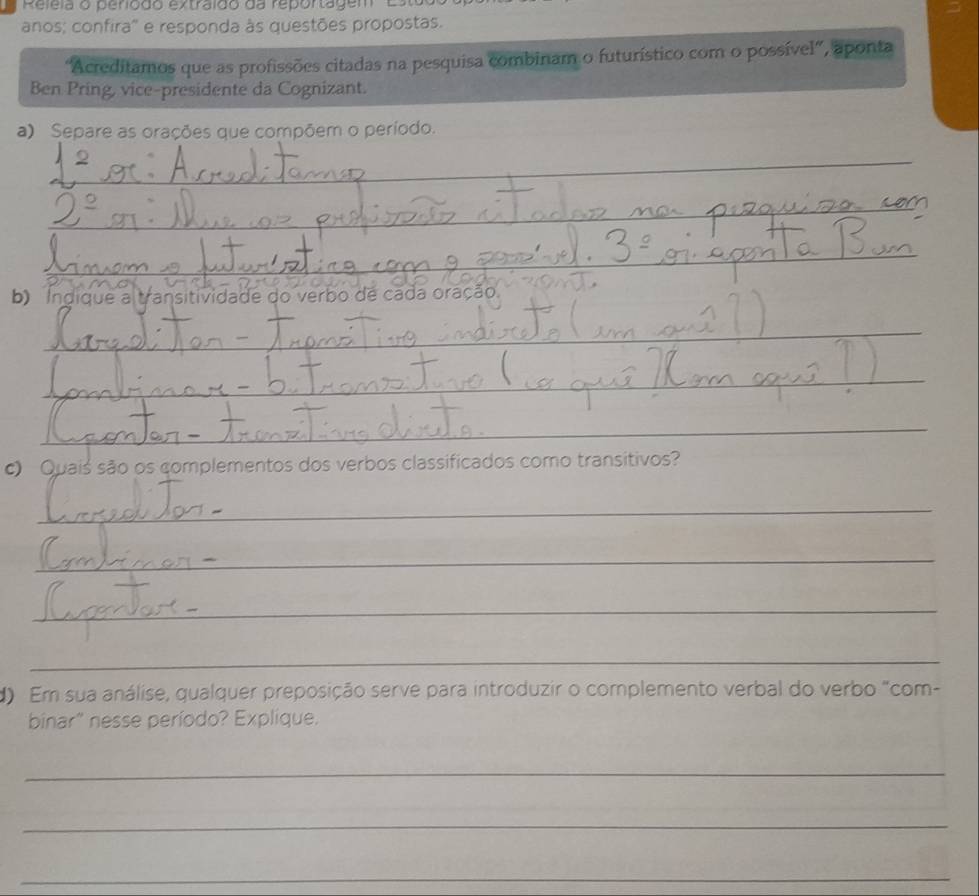 Releia o período extraído da reportagem
anos; confira" e responda às questões propostas.
"Acreditamos que as profissões citadas na pesquisa combinam o futurístico com o possível", aponta
Ben Pring, vice-presidente da Cognizant.
a) Separe as orações que compõem o período.
1º or: Acreditamos
2º or: Que as profissões citadas na pesquisa com
binam o futurístico com o possível. 3º or. aponta Ben
b) Indique a transitividade do verbo de cada oração.
Acreditar - Transitivo indireto (em quê?)
Combinar - bitransitivo (o quê? Com o quê?)
Apontar - transitivo direto.
c) Quais são os complementos dos verbos classificados como transitivos?
Acreditar -
Combinar -
Apontar -
d) Em sua análise, qualquer preposição serve para introduzir o complemento verbal do verbo "com-
binar" nesse período? Explique.